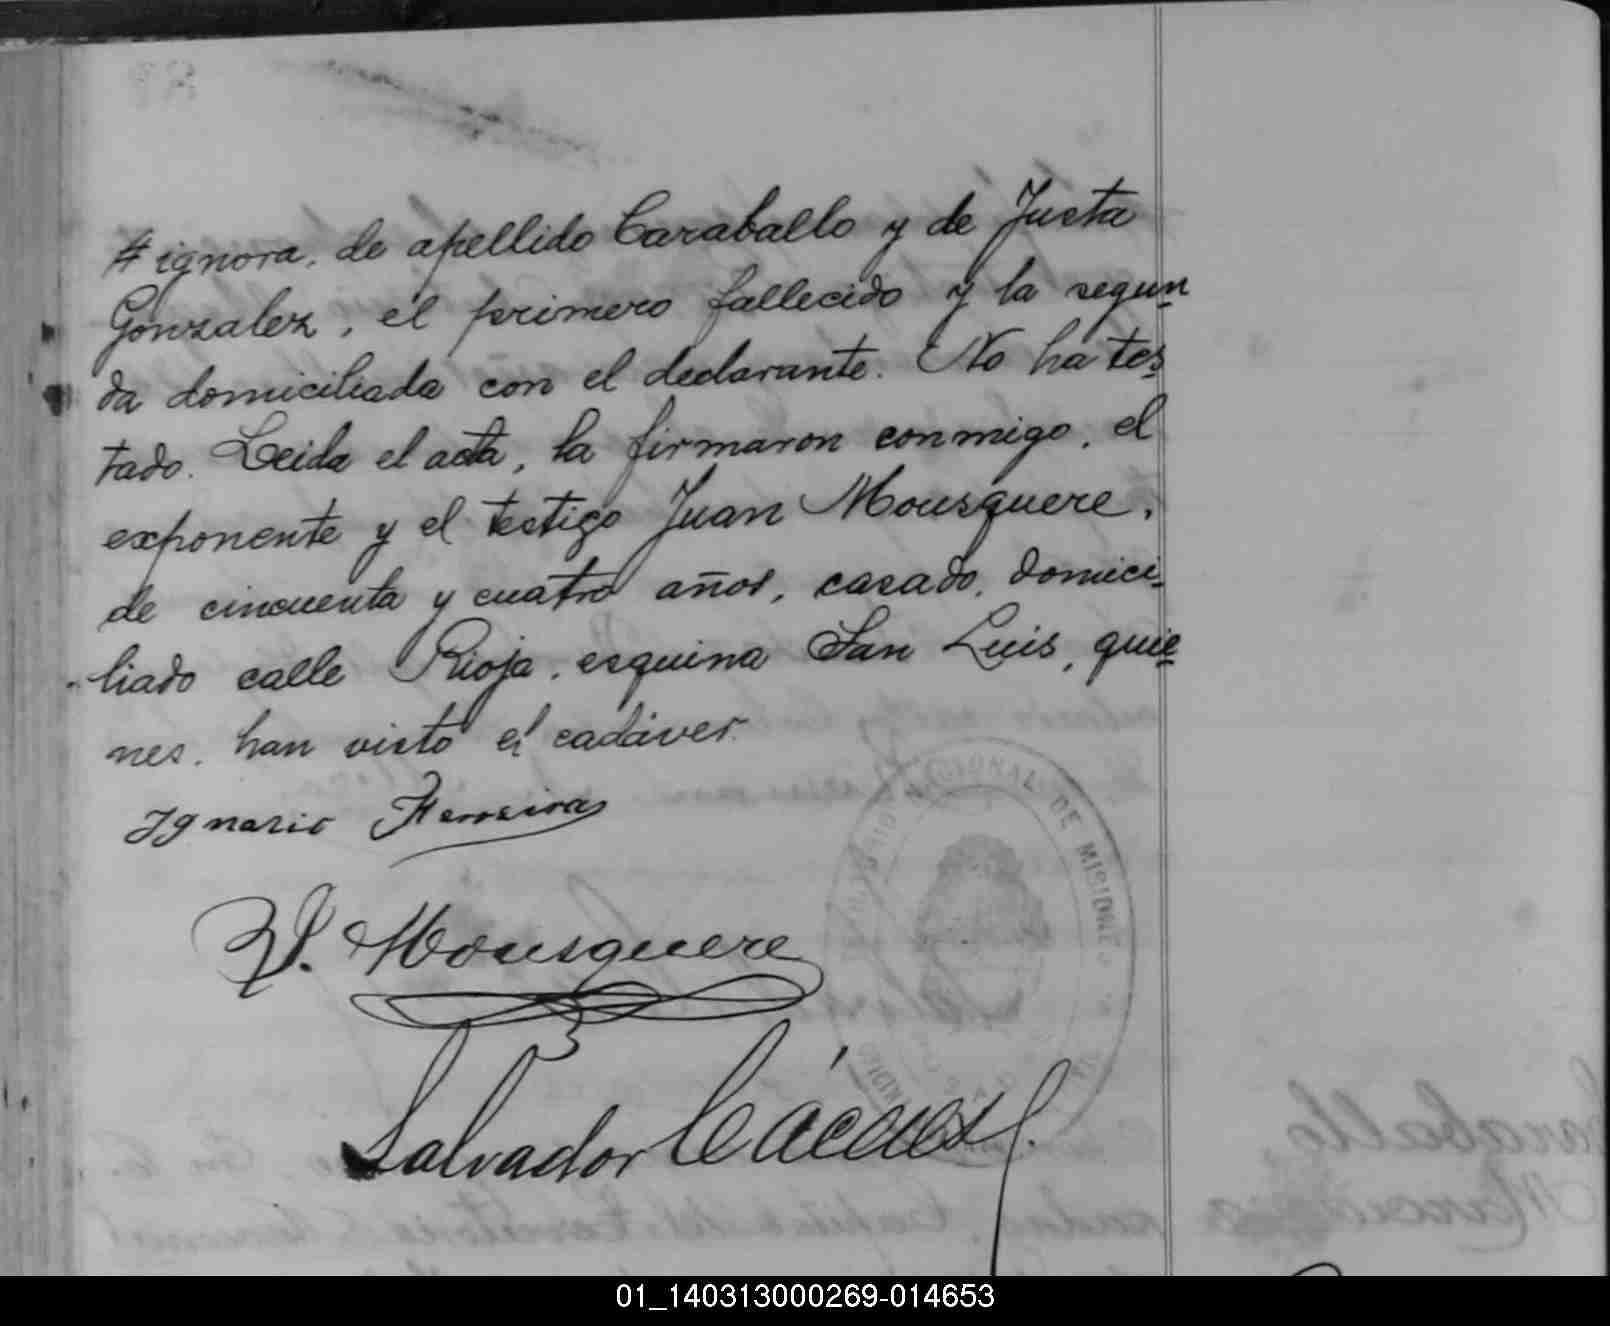 # ignora, de apellido Caraballo y de Justa
Gonzalez, el primero fallecido y la segun
da domiciliada con el declarante. No ha tes
tado. Leida el acta, la firmaron conmigo, el
exponente y el testigo Juan Mousquere,
de cincuenta y cuatro años, casado, domici-
liado calle Rioja, esquina San Luis, quie
nes, han visto el cadáver.
Ignasio Ferreira
J. Mousquere
NACIONAL DE MISIONES
Salvador Cáceres
01_140313000269-014653